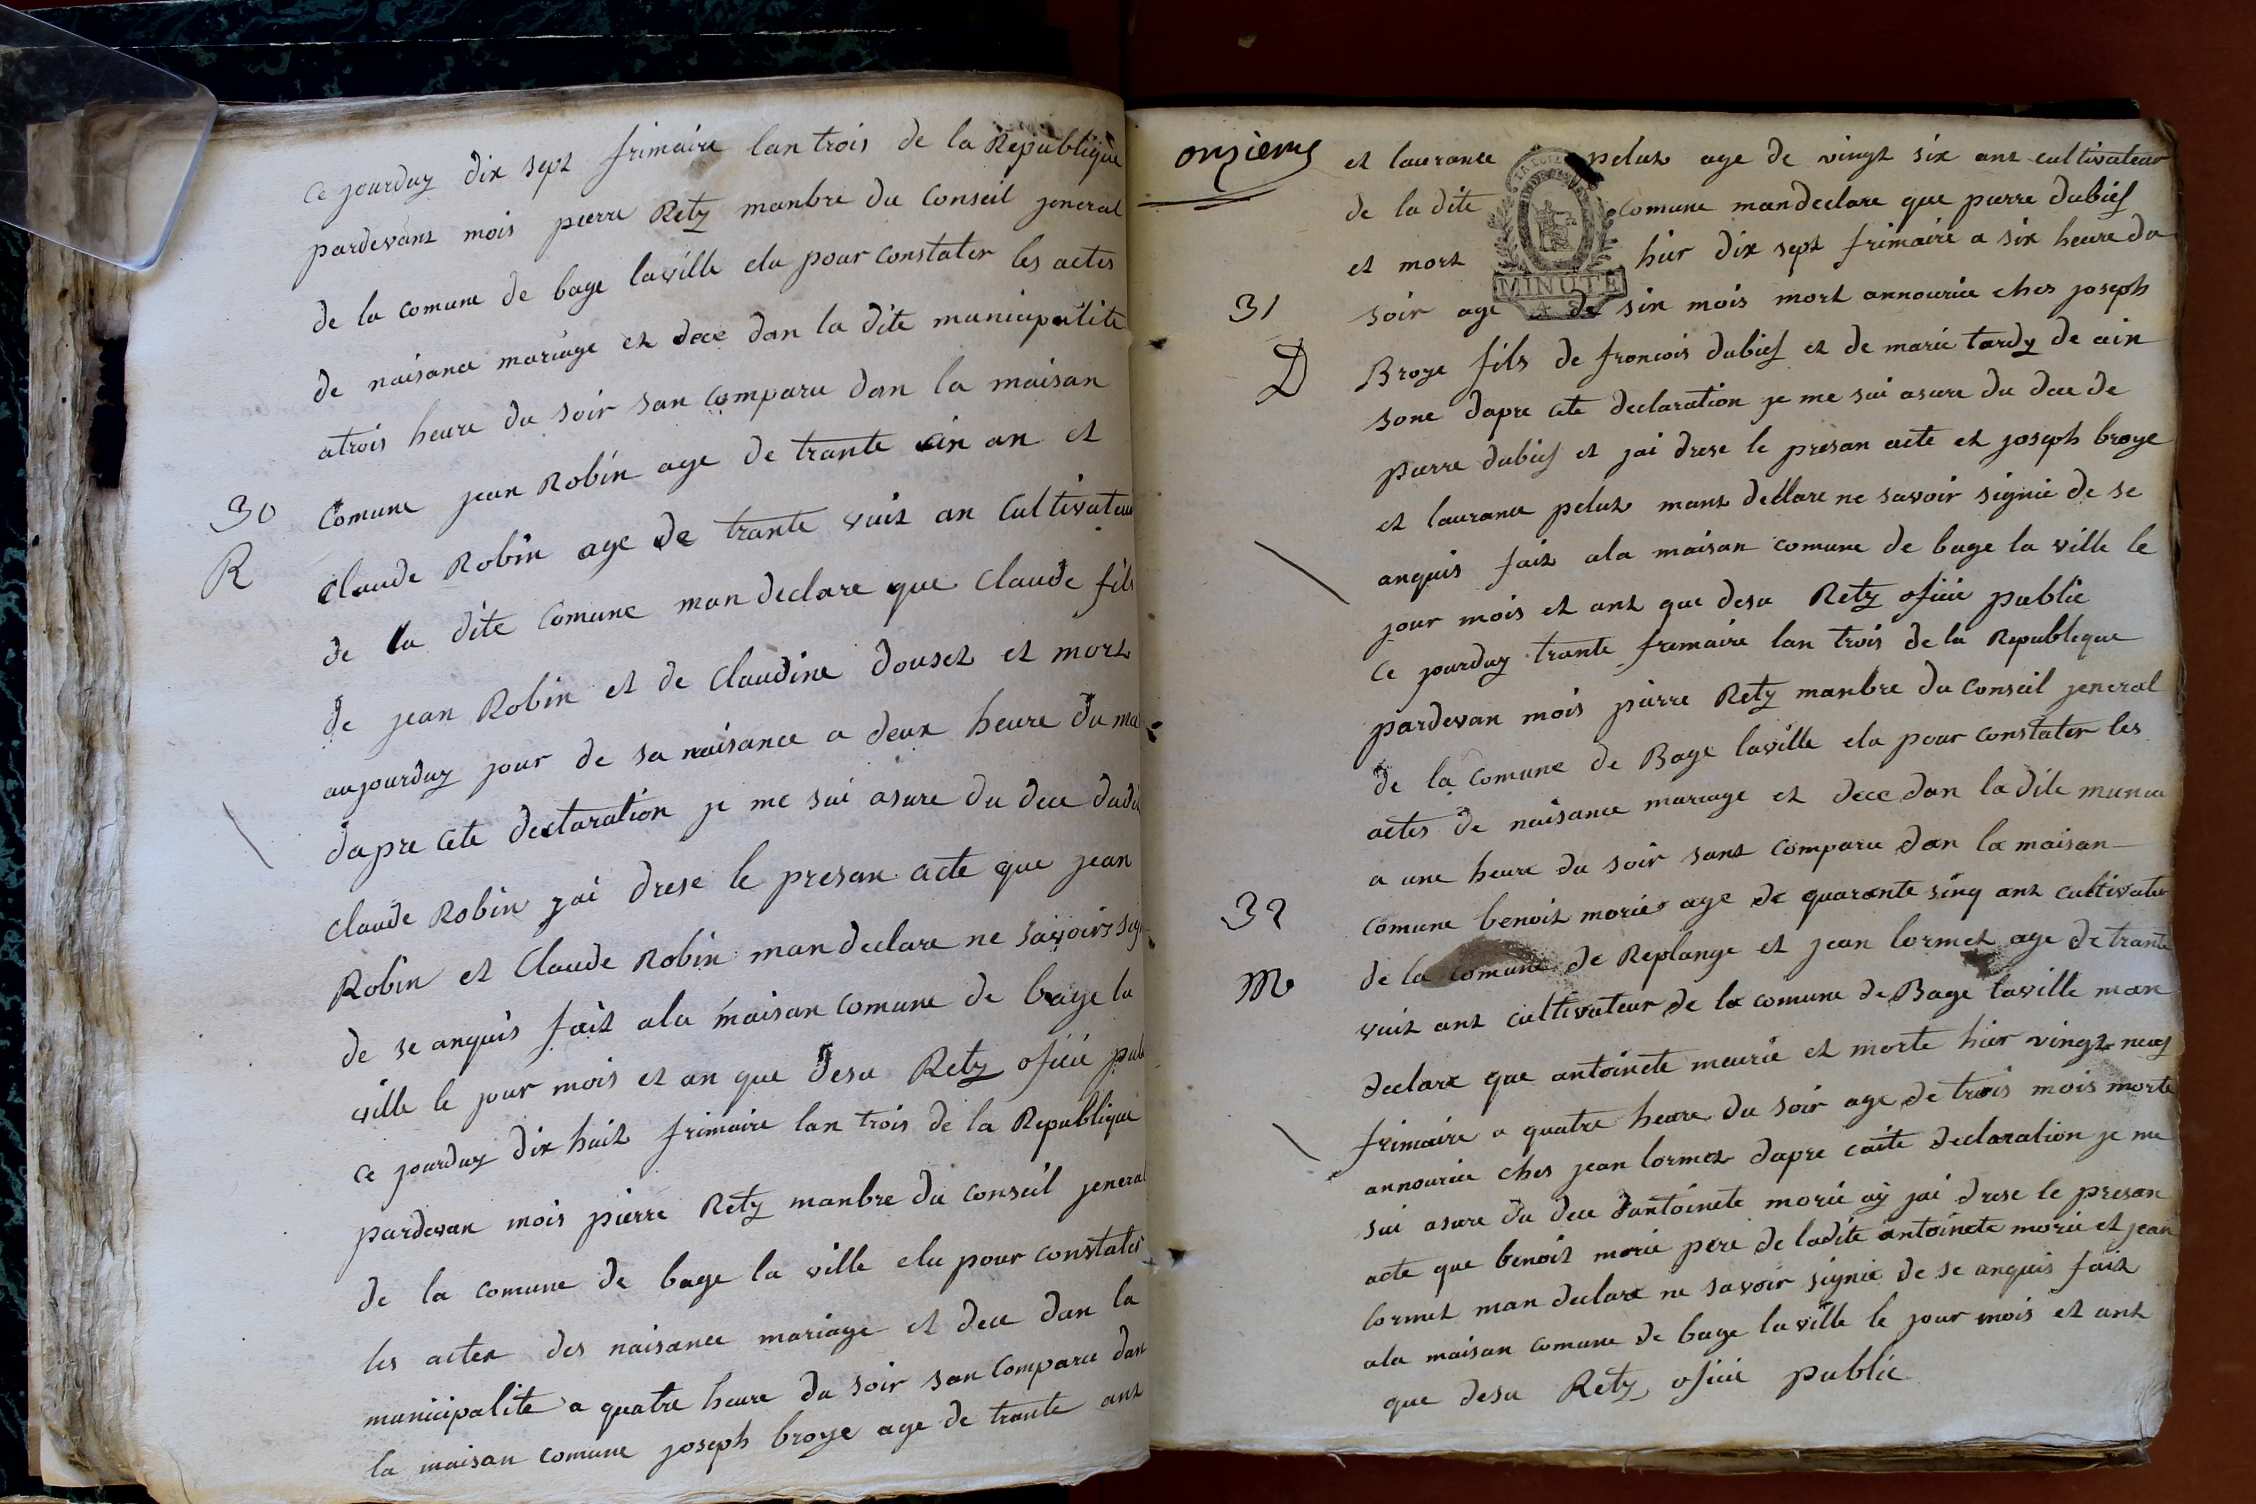 ce jourduy dix sept frimaire lan trois de la Republique
pardevant mois pierre Rety manbre du Conseil jeneral
de la comune de bage laville elu pour constater les actes
de naisance mariage et dece dan la dite municipalite
atrois heure du soir san comparu dan la maisan
30
comune jean Robin age de trante cin an et
R
Claude Robin age de trante vuit an Cultivateur
de la dite Comune man declare que Claude fils
de jean Robin et de Claudine douset et mort
aujourduy jour de sa naisance a deux heure du ma
dapre cete declaration je me sui asure du dece dudi
Claude Robin jai drese le presan acte que jean
Robin et Claude Robin man declare ne savoirs sig
de se anquis fait ala maisan comune de bage la
ville le jour mois et an que desu Rety oficie pub
ce jourduy dix huit frimaire lan trois de la Republique
pardevan mois pierre Rety manbre du conseil jeneral
de la comune de bage la ville elu pour constater
les actes des naisance mariage et dece dan la
municipalite a quatre heure du soir san comparu dan
la maisan comune joseph broye age de trante ant
onzieme
et laurance pelut age de vingt six ant cultivateur
de la dite comune mandeclare que pierre dubief
et mort hier dix sept frimaire a six heure du
MINUTE
31
soir age de six mois mort annourice ches joseph
D
Broye fils de francois dubief et de marie tardy de ain
sone dapre cete declaration je me sui asure du dece de
pierre dubief et jai drese le presan acte et joseph broye
et laurance pelut mant dellare ne savoir signie de se
anquis fait ala maisan comune de bage la ville le
jour mois et ant que desu Rety oficie public
ce jourduy trante fremaire lan trois de la Republeque
pardevan mois pierre Rety manbre du conseil jeneral
de la comune de Bage laville elu pour constater les
actes de naisance mariage et dece dan la dite munici
a une heure du soir sant comparu dan la maisan
32
comune benoit morie age de quarante sinq ant cultivateur
de la comune de Replange et jean lormet age de trante
M
vuit ant cultivateur de la comune de Bage laville man
declare que antoinete meurie et morte hier vingt neuf
frimaire a quatre heure du soir age de trois mois morte
annourice ches jean lormet dapre caite declaration je me
sui asure du dece dantoinete morie ay jai drese le presan
acte que benoit morie pere de ladite antoinete morie et jean
lormet man declare ne savoir signie de se anquis fait
ala maisan comune de bage laville le jour mois et ant
que desu Rety oficie public